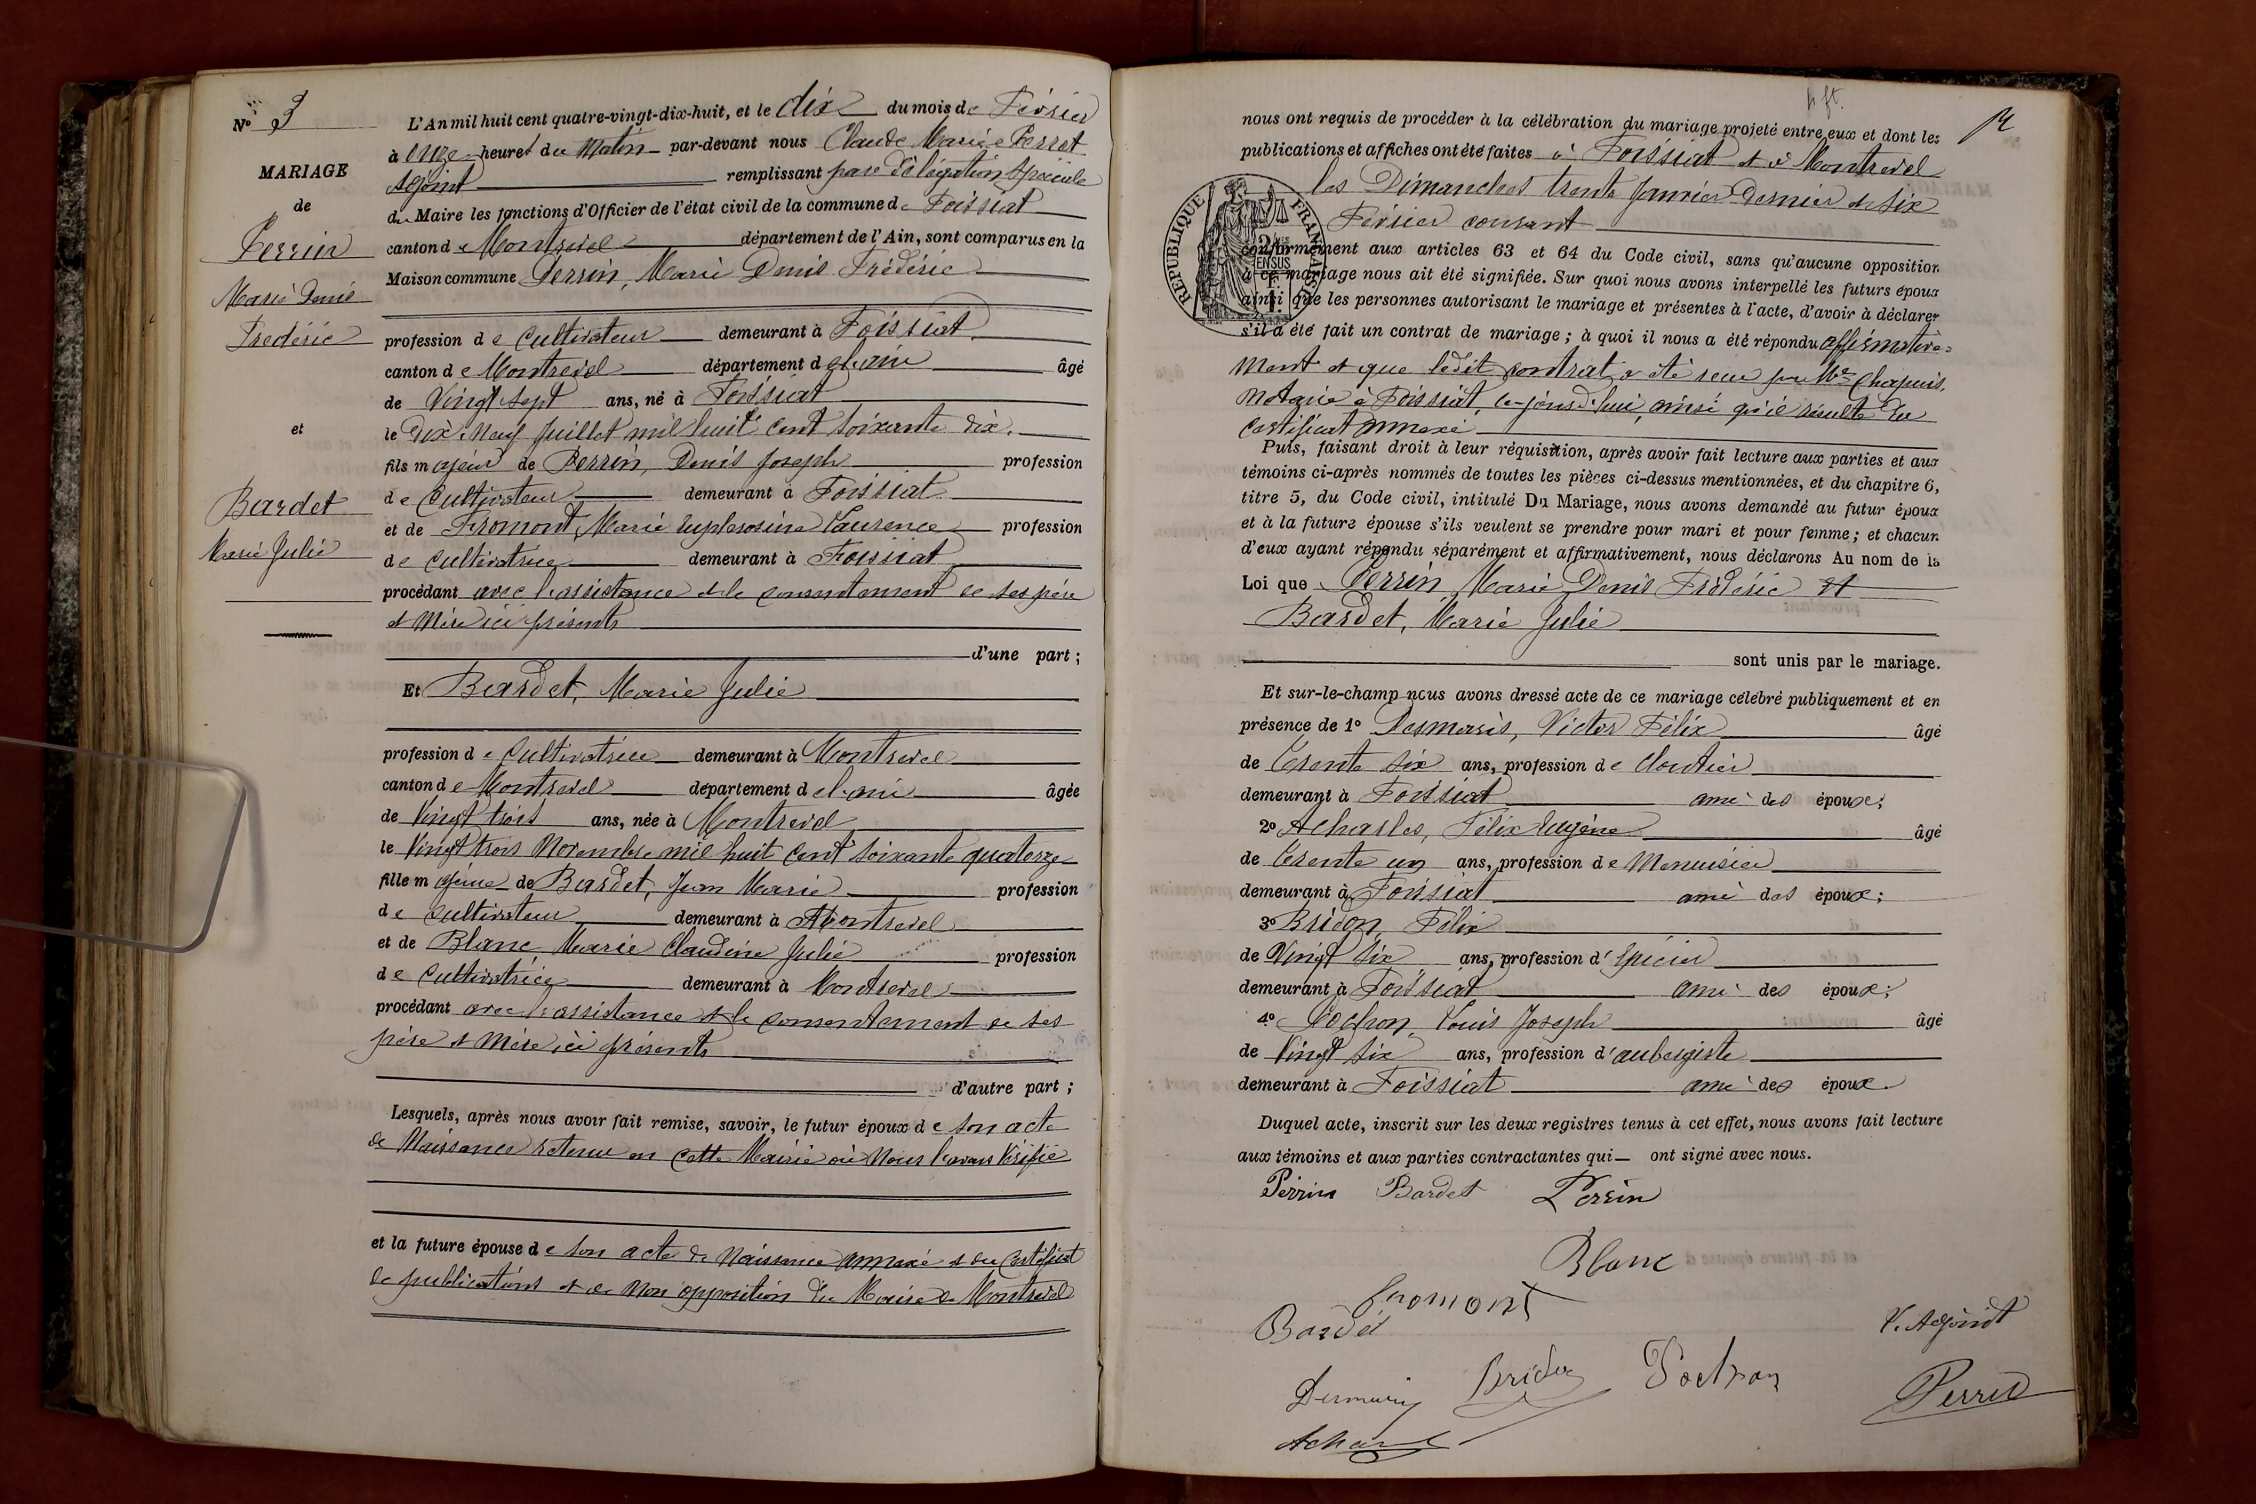 Nº 3
MARIAGE
de
Perrin
Marie Denis
Frédéric
et
Bardet
Marie Julie
L'An mil huit cent quatre-vingt-dix-huit, et le dix du mois de Février
à onze heures du Matin par-devant nous Claude Marie Perret
Adjoint remplissant par délégation spéciale
du Maire les fonctions d'Officier de l'état civil de la commune de Foissiat
canton de Montrevel département de l'Ain, sont comparus en la
Maison commune Perrin, Marie Denis Frédéric
profession de Cultivateur demeurant à Foissiat
canton de Montrevel département de l'ain âgé
de Vingt sept ans, né à Foissiat
le dix-Neuf Juillet mil huit cent soixante dix.
fils majeur de Perrin, Denis Joseph profession
de Cultivateur demeurant à Foissiat
et de Fromont, Marie Euphrosine Laurence profession
de cultivatrice demeurant à Foissiat
procédant avec l'assistance et le consentement de ses père
et Mère ici présents
d'une part;
Et Bardet, Marie Julie
profession de Cultivatrice demeurant à Montrevel
canton de Montrevel département de l'ain âgée
de Vingt trois ans, née à Montrevel
le Vingt trois Novembre mil huit cent soixante quatorze
fille majeure de Bardet, Jean Marie profession
de cultivateur demeurant à Montrevel
et de Blanc Marie Claudine Julie profession
de Cultivatrice demeurant à Montrevel
procédant avec l'assistance et le consentement de ses
père et Mère ici présents
d'autre part;
Lesquels, après nous avoir fait remise, savoir, le futur époux de son acte
de Naissance retenu en cette Mairie où Nous l'avons Vérifié
et la future épouse de son acte de Naissance annexé et du Certificat
de publications et de Non opposition du Maire de Montrevel
nous ont requis de procéder à la célébration du mariage projeté entre eux et dont les
publications et affiches ont été faites à Foissiat et à Montrevel
les Dimanches trente Janvier Dernier et six
Février courant
RÉPUBLIQUE FRANÇAISE
conformément aux articles 63 et 64 du Code civil, sans qu'aucune opposition
à ce mariage nous ait été signifiée. Sur quoi nous avons interpellé les futurs époux
ainsi que les personnes autorisant le mariage et présentes à l'acte, d'avoir à déclarer
s'il a été fait un contrat de mariage; à quoi il nous a été répondu affirmative=
ment et que ledit contrat a été reçu par Me Chapuis,
Notaire à Foissiat, ce-jourd'hui, ainsi qu'il résulte du
Certificat annexé
Puis, faisant droit à leur réquisition, après avoir fait lecture aux parties et aux
témoins ci-après nommés de toutes les pièces ci-dessus mentionnées, et du chapitre 6,
titre 5, du Code civil, intitulé Du Mariage, nous avons demandé au futur époux
et à la future épouse s'ils veulent se prendre pour mari et pour femme; et chacun
d'eux ayant répondu séparément et affirmativement, nous déclarons Au nom de la
Loi que Perrin, Marie Denis Frédéric et
Bardet, Marie Julie
sont unis par le mariage.
Et sur-le-champ nous avons dressé acte de ce mariage célébré publiquement et en
présence de 1º Desmaris, Victor Félix âgé
de Trente six ans, profession de Cloutier
demeurant à Foissiat ami des époux;
2º Félix Eugène âgé
de Trente un ans, profession de Menuisier
demeurant à Foissiat ami des époux;
3º Bridon, Félix
de Vingt six ans, profession d'Epicier
demeurant à Foissiat ami des époux;
4º Pochon, Louis Joseph âgé
de Vingt six ans, profession d'aubergiste
demeurant à Foissiat ami des époux.
Duquel acte, inscrit sur les deux registres tenus à cet effet, nous avons fait lecture
aux témoins et aux parties contractantes qui ont signé avec nous.
Perrin Bardet Perrin
Blanc
fromont
Bardet
V. Adjoint
Bridon Pochon
Perret
Achard